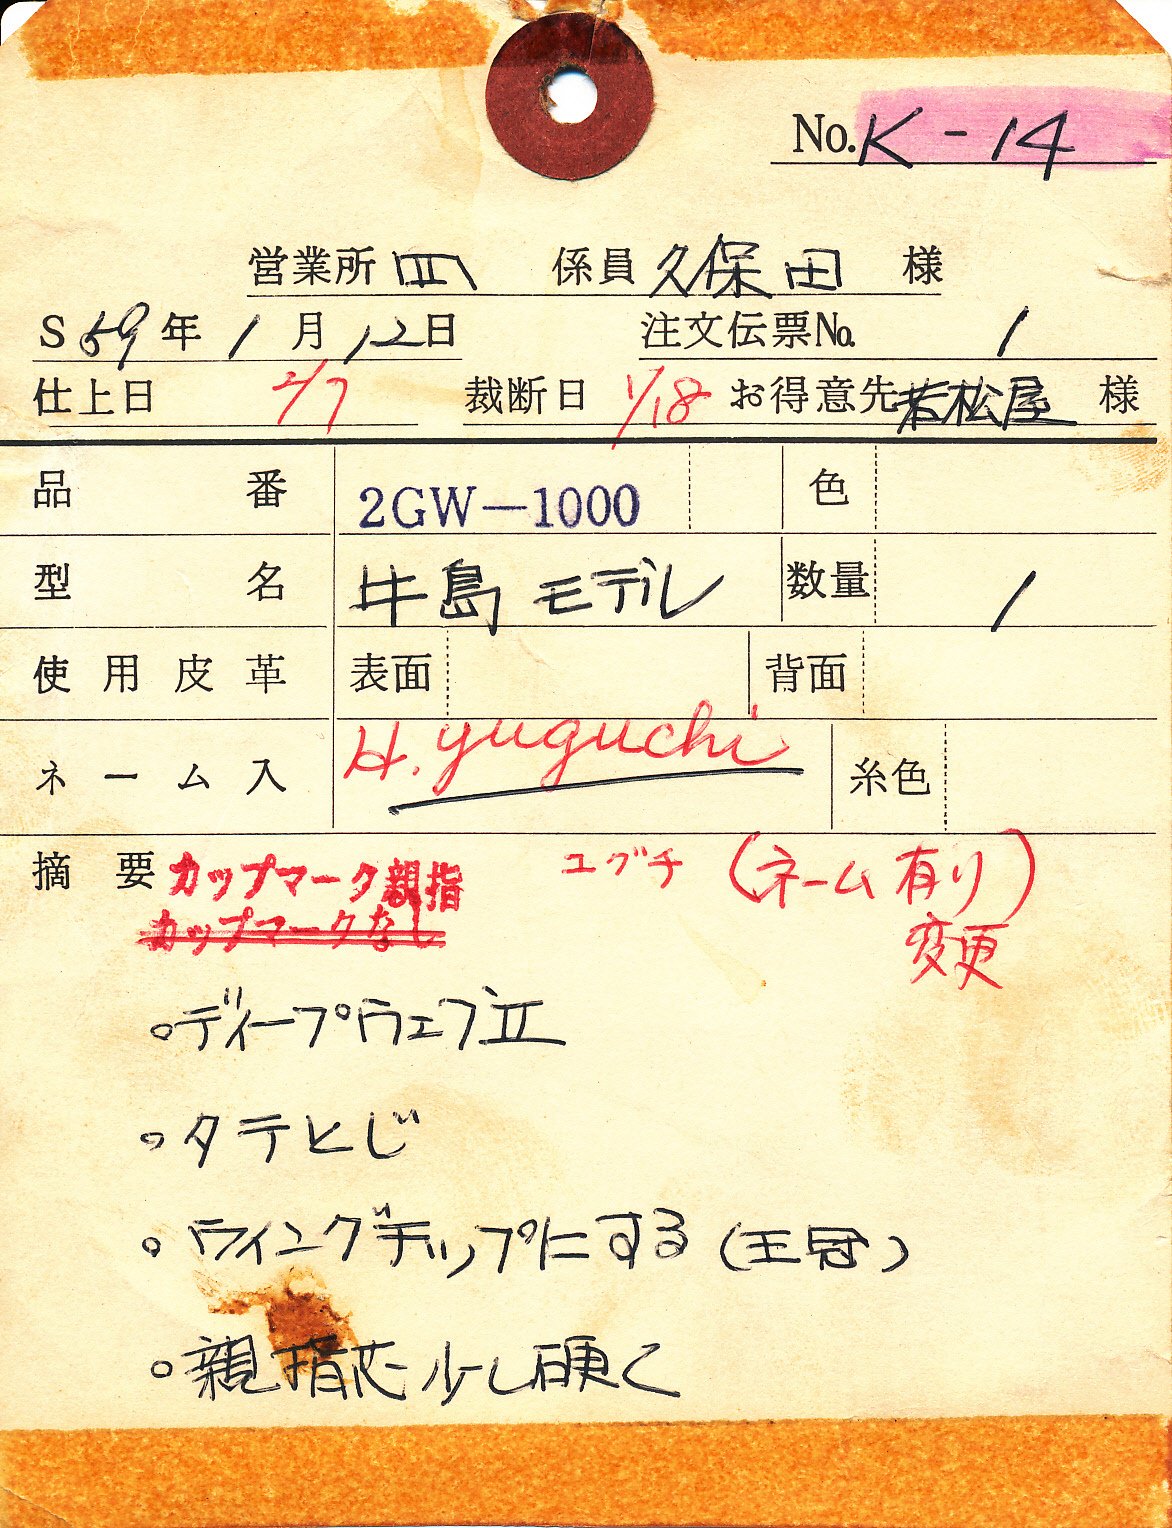 No. K-14
営業所 四 係員 久保田 様
S 59年 1月 12日 注文伝票No. 1
仕上日 2/7 裁断日 1/18 お得意先 若松屋 様
品番 2GW-1000 色
型名 牛島モデル 数量 1
使用皮革 表面 背面
ネーム入 H. yuguchi 糸色
摘要 カップマーク親指 ユグチ (ネーム有り)
カップマークなし 変更
○ディープウェブ立
○タテとじ
○ウイングチップにする(王冠)
○親指芯少し硬く